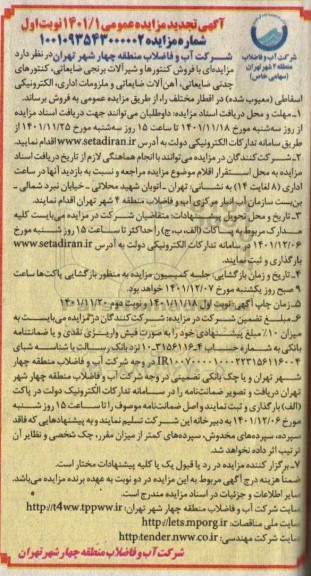 آگهی تجدید مزایده عمومی ۱۴۰۱/۱ نوبت اول
شماره مزایده ۱۰۰۱۰۹۳۵۴۳۰۰۰۰۰۲
شرکت آب و فاضلاب
منطقه ۴ شهر تهران
(سهامی خاص)
شرکت آب و فاضلاب منطقه چهار شهر تهران در نظر دارد
مزایده‌ای با فروش کنتورها و شیرآلات برنجی ضایعاتی، کنتورهای
چدنی ضایعاتی، آهن‌آلات ضایعاتی و ملزومات اداری، الکترونیکی
اسقاطی (معیوب شده) در اقطار مختلف را، از طریق مزایده عمومی به فروش برساند.
۱ـ مهلت و محل دریافت اسناد مزایده: داوطلبان می‌توانند جهت دریافت اسناد مزایده
از روز سه‌شنبه مورخ ۱۴۰۱/۱۱/۱۸ تا ساعت ۱۵ روز سه‌شنبه مورخ ۱۴۰۱/۱۱/۲۵ از
طریق سامانه تدارکات الکترونیکی دولت به آدرس www.setadiran.ir اقدام نمایند.
۲ـ شرکت‌کنندگان در مزایده می‌توانند با انجام هماهنگی لازم از تاریخ دریافت اسناد
مزایده به محل استقرار اقلام موضوع مزایده مراجعه و نسبت به بازدید آنها در ساعت
اداری (۸ لغایت ۱۴) به نشانی: تهران ـ اتوبان شهید محلاتی ـ خیابان نبرد شمالی ـ
بن‌بست سازمان آب انبار مرکزی آب و فاضلاب منطقه ۴ شهر تهران اقدام نمایند.
۳ـ تاریخ و محل تحویل پیشنهادات: متقاضیان شرکت در مزایده می‌بایست کلیه
مدارک مربوط به پاکات (الف، ب، ج) را حداکثر تا ساعت ۱۵ روز شنبه مورخ
۱۴۰۱/۱۲/۰۶ در سامانه تدارکات الکترونیکی دولت به آدرس www.setadiran.ir
بارگذاری و ثبت نمایند.
۴ـ تاریخ و زمان بازگشایی: جلسه کمیسیون مزایده به منظور بازگشایی پاکت‌ها ساعت
۹ صبح روز یکشنبه مورخ ۱۴۰۱/۱۲/۰۷ خواهد بود.
۵ـ زمان چاپ آگهی: نوبت اول ۱۴۰۱/۱۱/۱۸ و نوبت دوم ۱۴۰۱/۱۱/۲۰
۶ـ مبلغ تضمین شرکت در مزایده: شرکت‌کنندگان در مزایده می‌بایست به
میزان ۱۰٪ مبلغ پیشنهادی خود را به صورت فیش واریزی نقدی و یا ضمانتنامه
بانکی به شماره حساب ۴ـ۳۱۵۶۱۱۶ـ۱۰ نزد بانک رسالت با شناسه شبای
IR۱۰۰۷۰۰۰۰۱۰۰۰۲۲۳۱۵۶۱۱۶۰۰۴ در وجه شرکت آب و فاضلاب منطقه چهار
شهر تهران و یا چک بانکی تضمینی در وجه شرکت آب و فاضلاب منطقه چهار شهر
تهران دریافت و تصویر ضمانتنامه را در سامانه تدارکات الکترونیک دولت در پاکت
(الف) بارگذاری و ثبت نمایند و اصل ضمانتنامه موصوف را تا ساعت ۱۵ روز شنبه
مورخ ۱۴۰۱/۱۲/۰۶ به دبیرخانه این شرکت تسلیم نمایند و به پیشنهادهایی که فاقد
سپرده، سپرده‌های مخدوش، سپرده‌های کمتر از میزان مقرر، چک شخصی و نظایر آن
ترتیب اثر داده نخواهد شد.
۷ـ برگزار کننده مزایده در رد یا قبول یک یا کلیه پیشنهادات مختار است.
ضمناً هزینه درج آگهی مربوط به این مزایده در دو نوبت به عهده برنده مزایده می‌باشد.
سایر اطلاعات و جزئیات در اسناد مزایده مندرج است.
سایت شرکت آب و فاضلاب منطقه چهار شهر تهران: http://t4ww.tppww.ir
سایت ملی مناقصات: http://iets.mporg.ir
سایت شرکت مهندسی: http:tender.nww.co.ir
شرکت آب و فاضلاب منطقه چهار شهر تهران